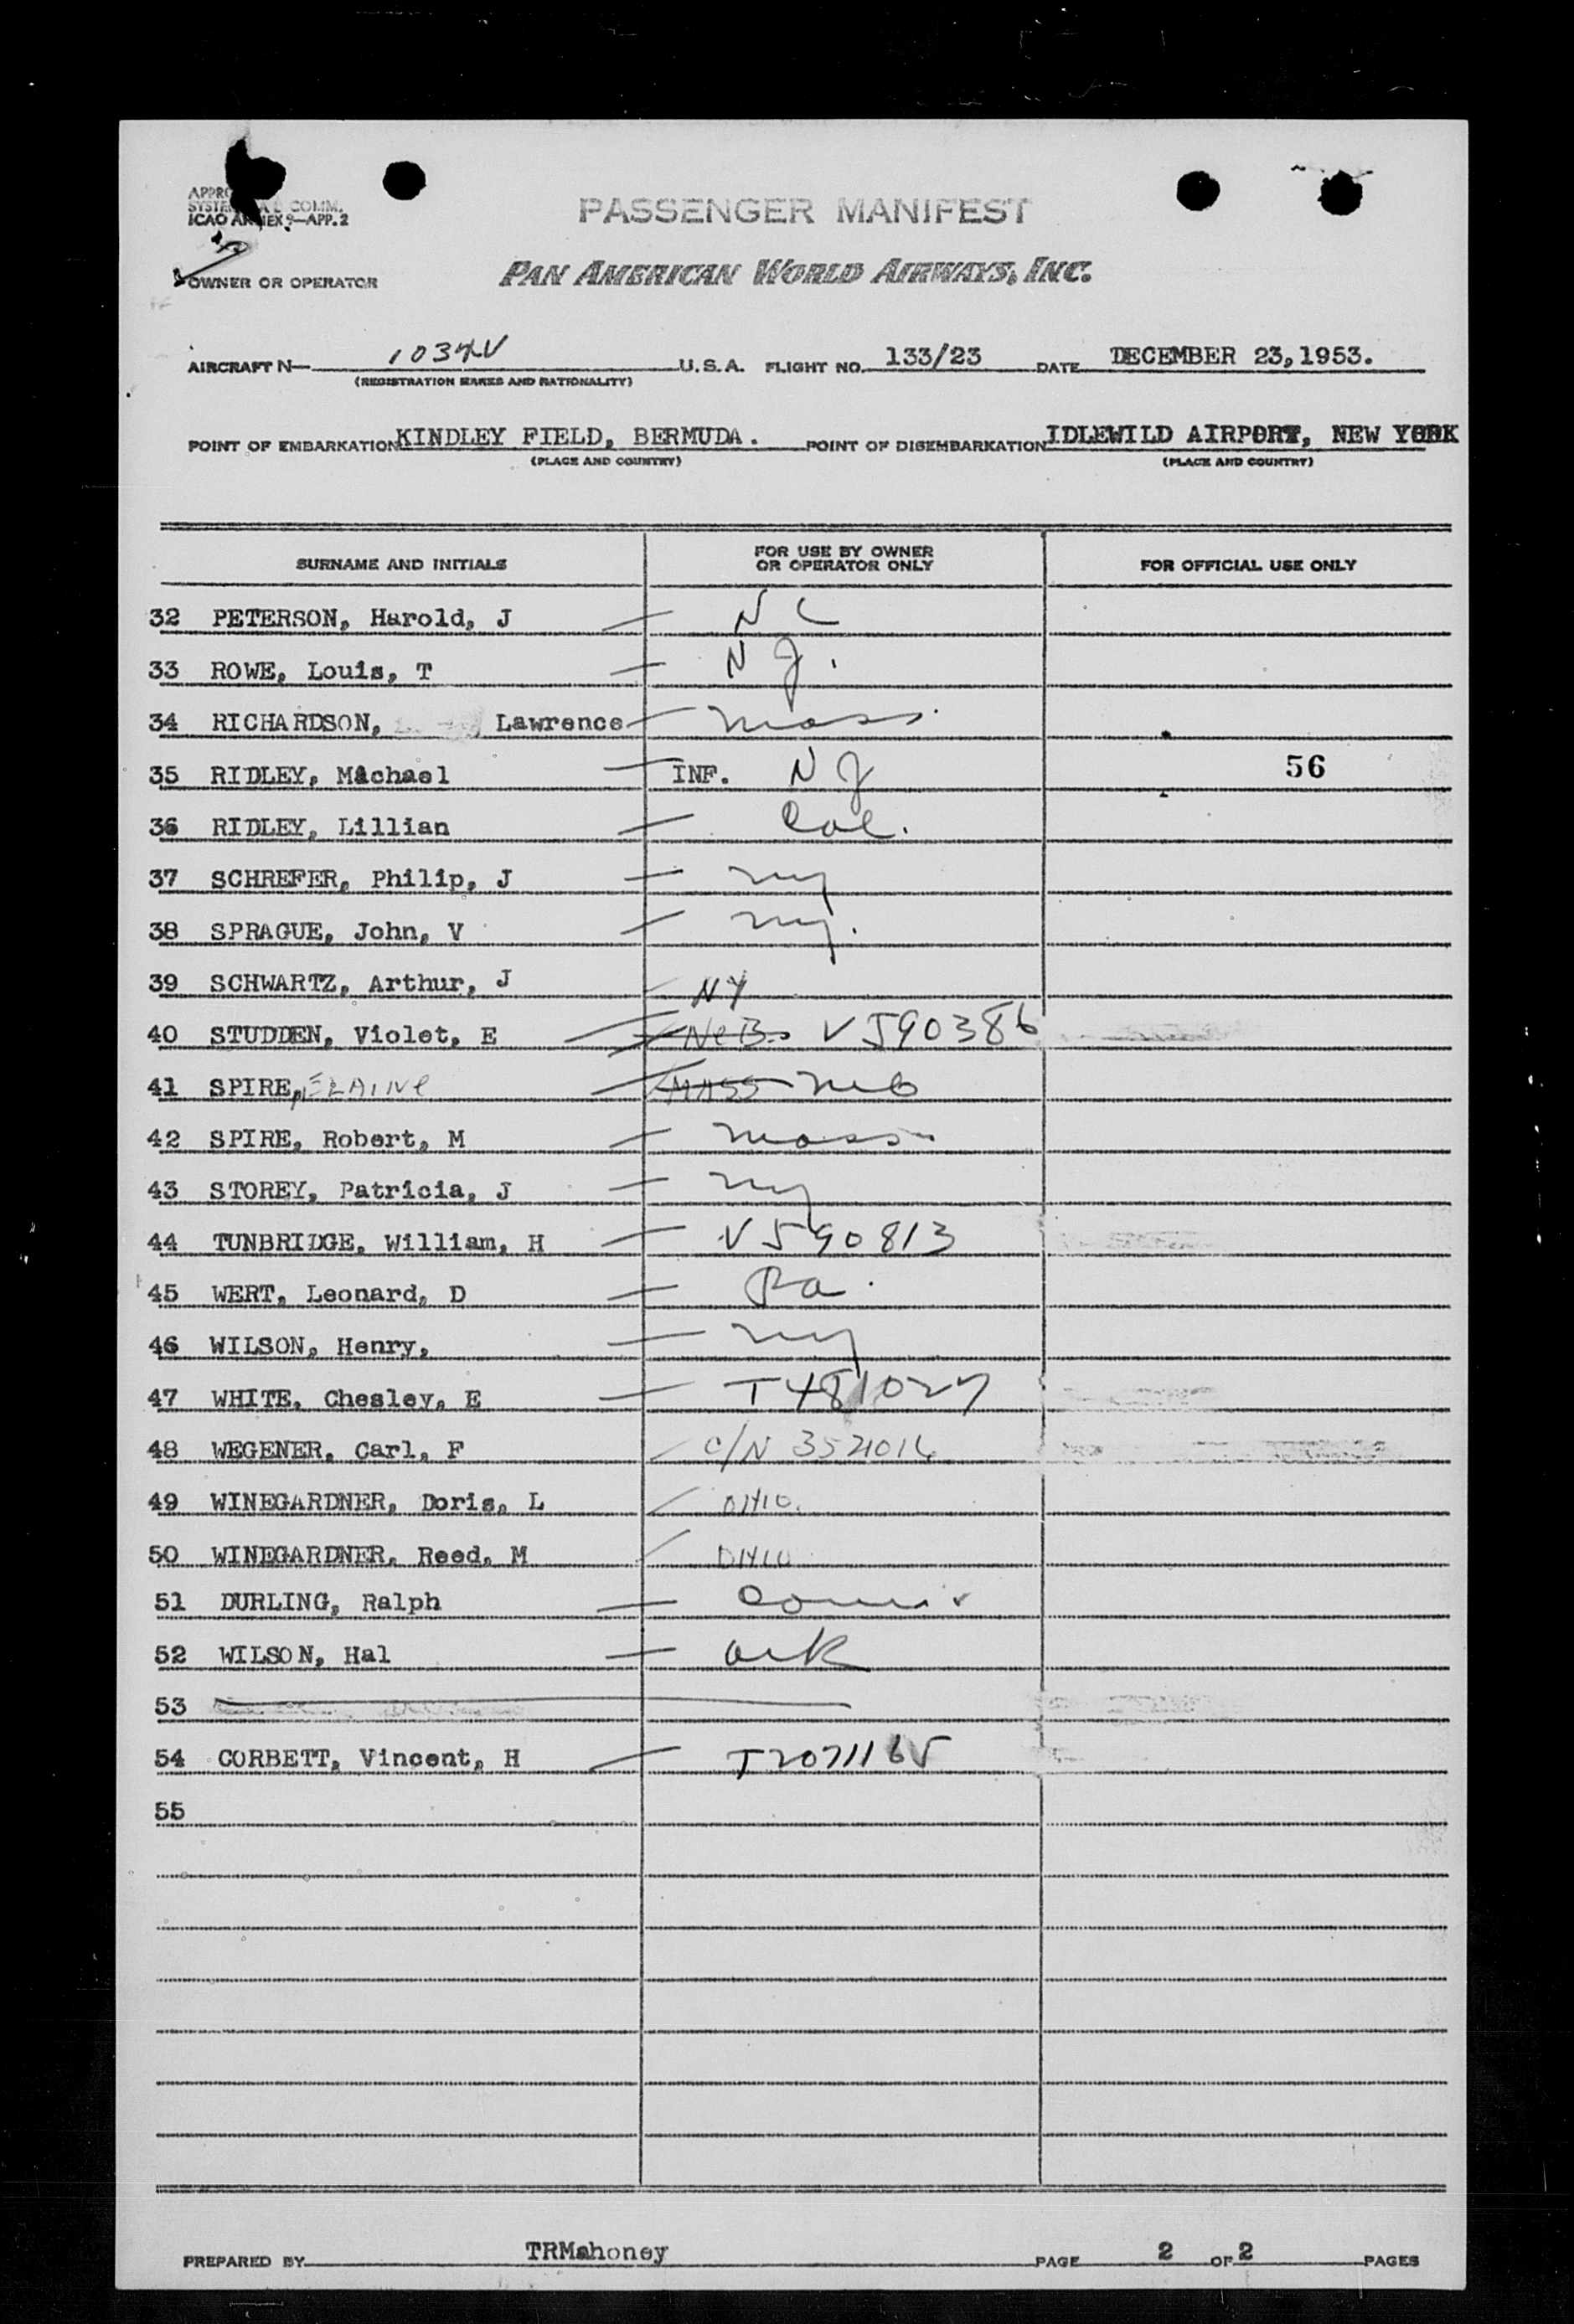 ICAO ANNEX 9—APP. 2
PASSENGER MANIFEST
OWNER OR OPERATOR PAN AMERICAN WORLD AIRWAYS, INC.
AIRCRAFT N— 1034V U.S.A. FLIGHT NO. 133/23 DATE DECEMBER 23, 1953.
(REGISTRATION MARKS AND NATIONALITY)
POINT OF EMBARKATION KINDLEY FIELD, BERMUDA. POINT OF DISEMBARKATION IDLEWILD AIRPORT, NEW YORK
(PLACE AND COUNTRY) (PLACE AND COUNTRY)
SURNAME AND INITIALS FOR USE BY OWNER OR OPERATOR ONLY FOR OFFICIAL USE ONLY
32 PETERSON, Harold, J — N C
33 ROWE, Louis, T — N J.
34 RICHARDSON, Lawrence — mass.
35 RIDLEY, Michael — INF. N J 56
36 RIDLEY, Lillian — Col.
37 SCHREFER, Philip, J — ny
38 SPRAGUE, John, V — nj.
39 SCHWARTZ, Arthur, J NY
40 STUDDEN, Violet, E NeB. V590386
41 SPIRE, ELAINe MASS neb
42 SPIRE, Robert, M — mass
43 STOREY, Patricia, J — ny
44 TUNBRIDGE, William, H — V590813
45 WERT, Leonard, D — Pa.
46 WILSON, Henry, — ny
47 WHITE, Chesley, E — T481027
48 WEGENER, Carl, F C/N 3521016
49 WINEGARDNER, Doris, L OHIO.
50 WINEGARDNER, Reed, M OHIO
51 DURLING, Ralph — Conn.
52 WILSON, Hal — ark
53
54 CORBETT, Vincent, H — T2071165
55
PREPARED BY TRMahoney PAGE 2 OF 2 PAGES